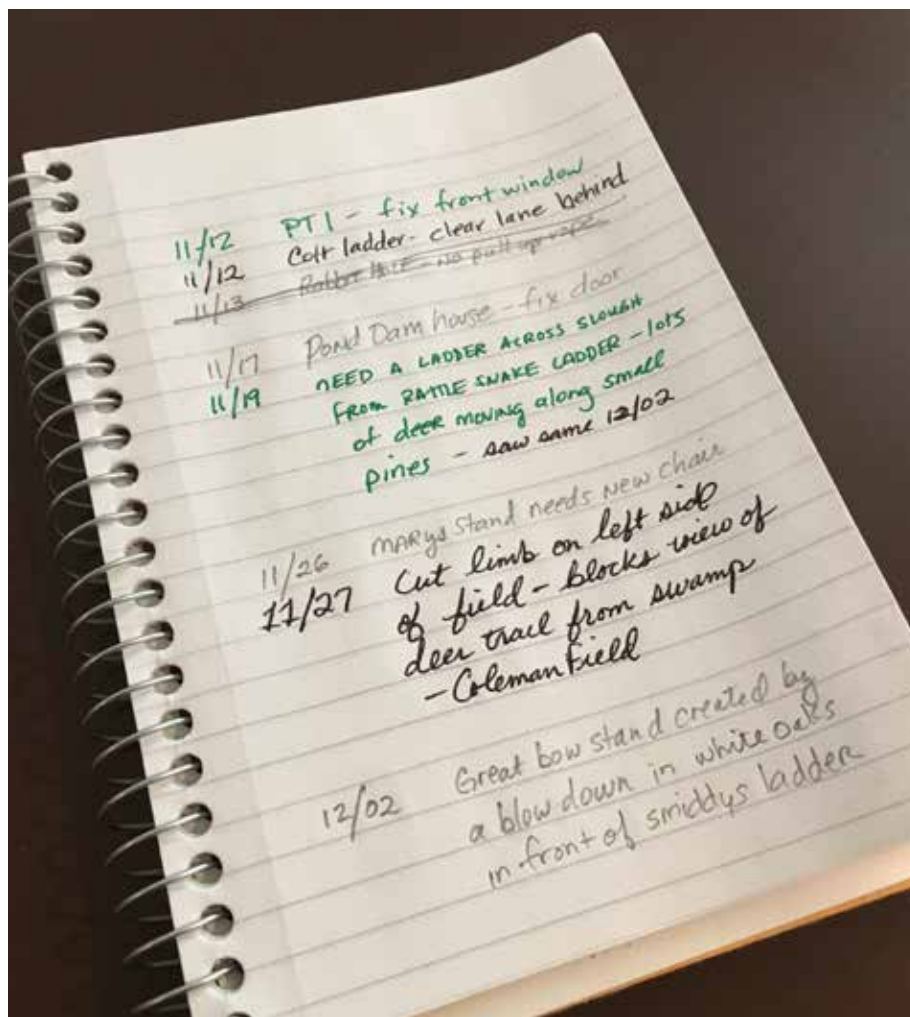 11/12 PT1 - fix front window
11/12 Colt ladder - clear lane behind
11/13 Rabbit Hole - No pull up rope
11/17 Pond Dam house - fix door
11/19 NEED A LADDER ACROSS SLOUGH
FROM RATTLE SNAKE LADDER - lots
of deer moving along small
pines - saw same 12/02
11/26 MARYs stand needs New chair
11/27 Cut limb on left side
of field - blocks view of
deer trail from swamp
- Coleman Field
12/02 Great bow stand created by
a blow down in white oaks
in front of smiddys ladder